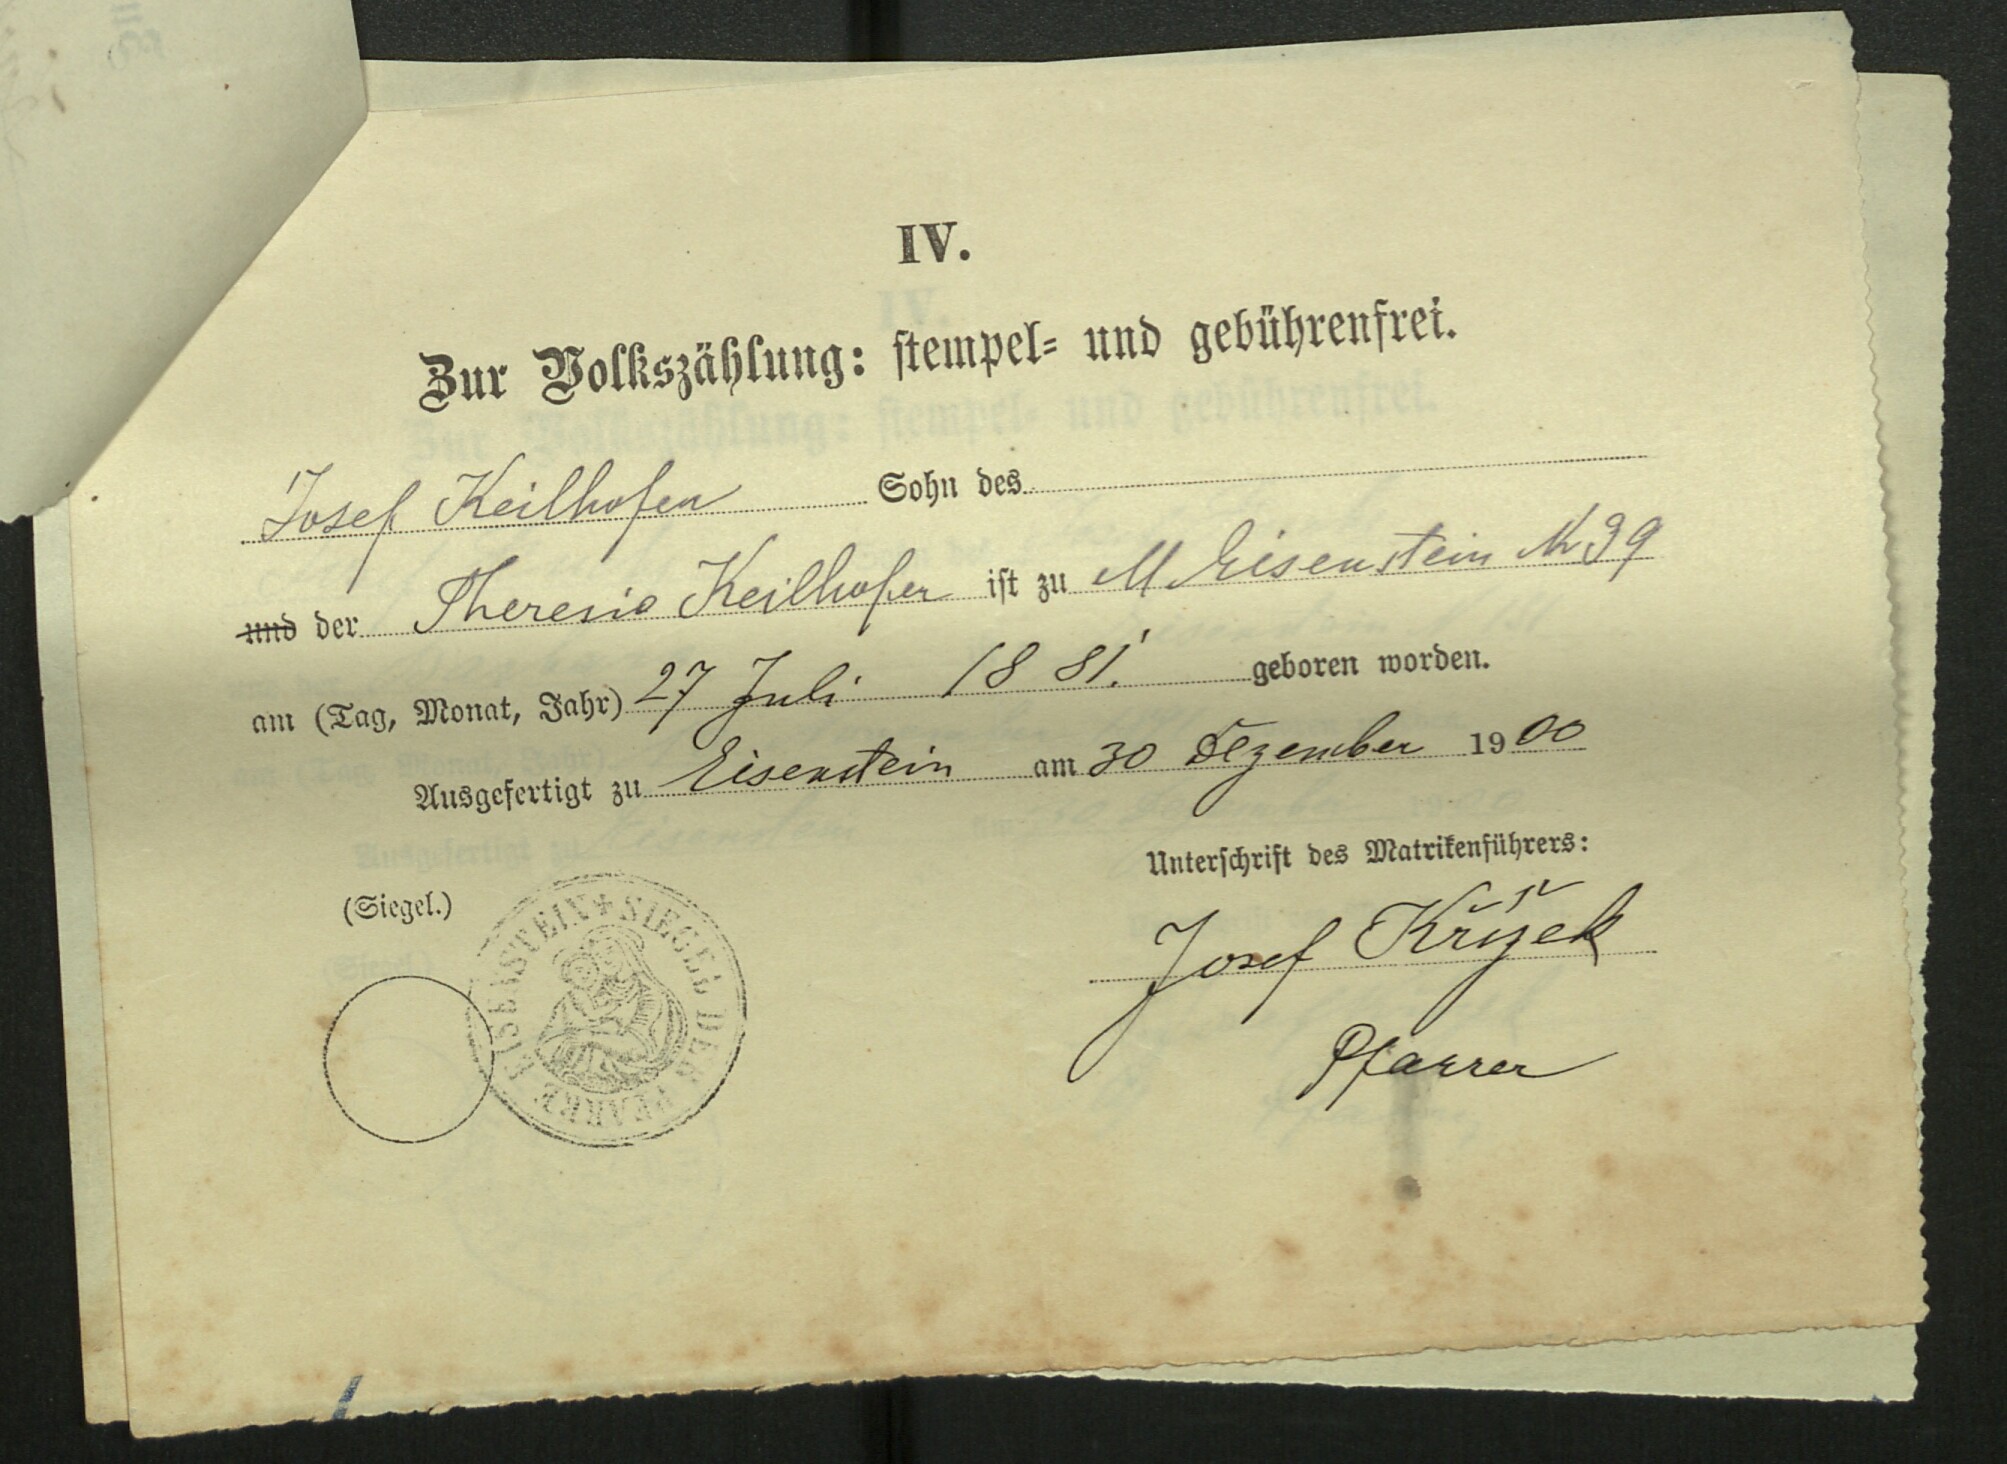 IV.
Zur Volkszählung: stempel- und gebührenfrei.
Josef Keilhofer Sohn des
und der Theresia Keilhofer ist zu M Eisenstein N 39
am (Tag, Monat, Jahr) 27 Juli 1881. geboren worden.
Ausgefertigt zu Eisenstein am 30 Dezember 1900
Unterschrift des Matrikenführers:
(Siegel.)
SIEGEL DER PFARRE EISENSTEIN
Josef Křižek
Pfarrer